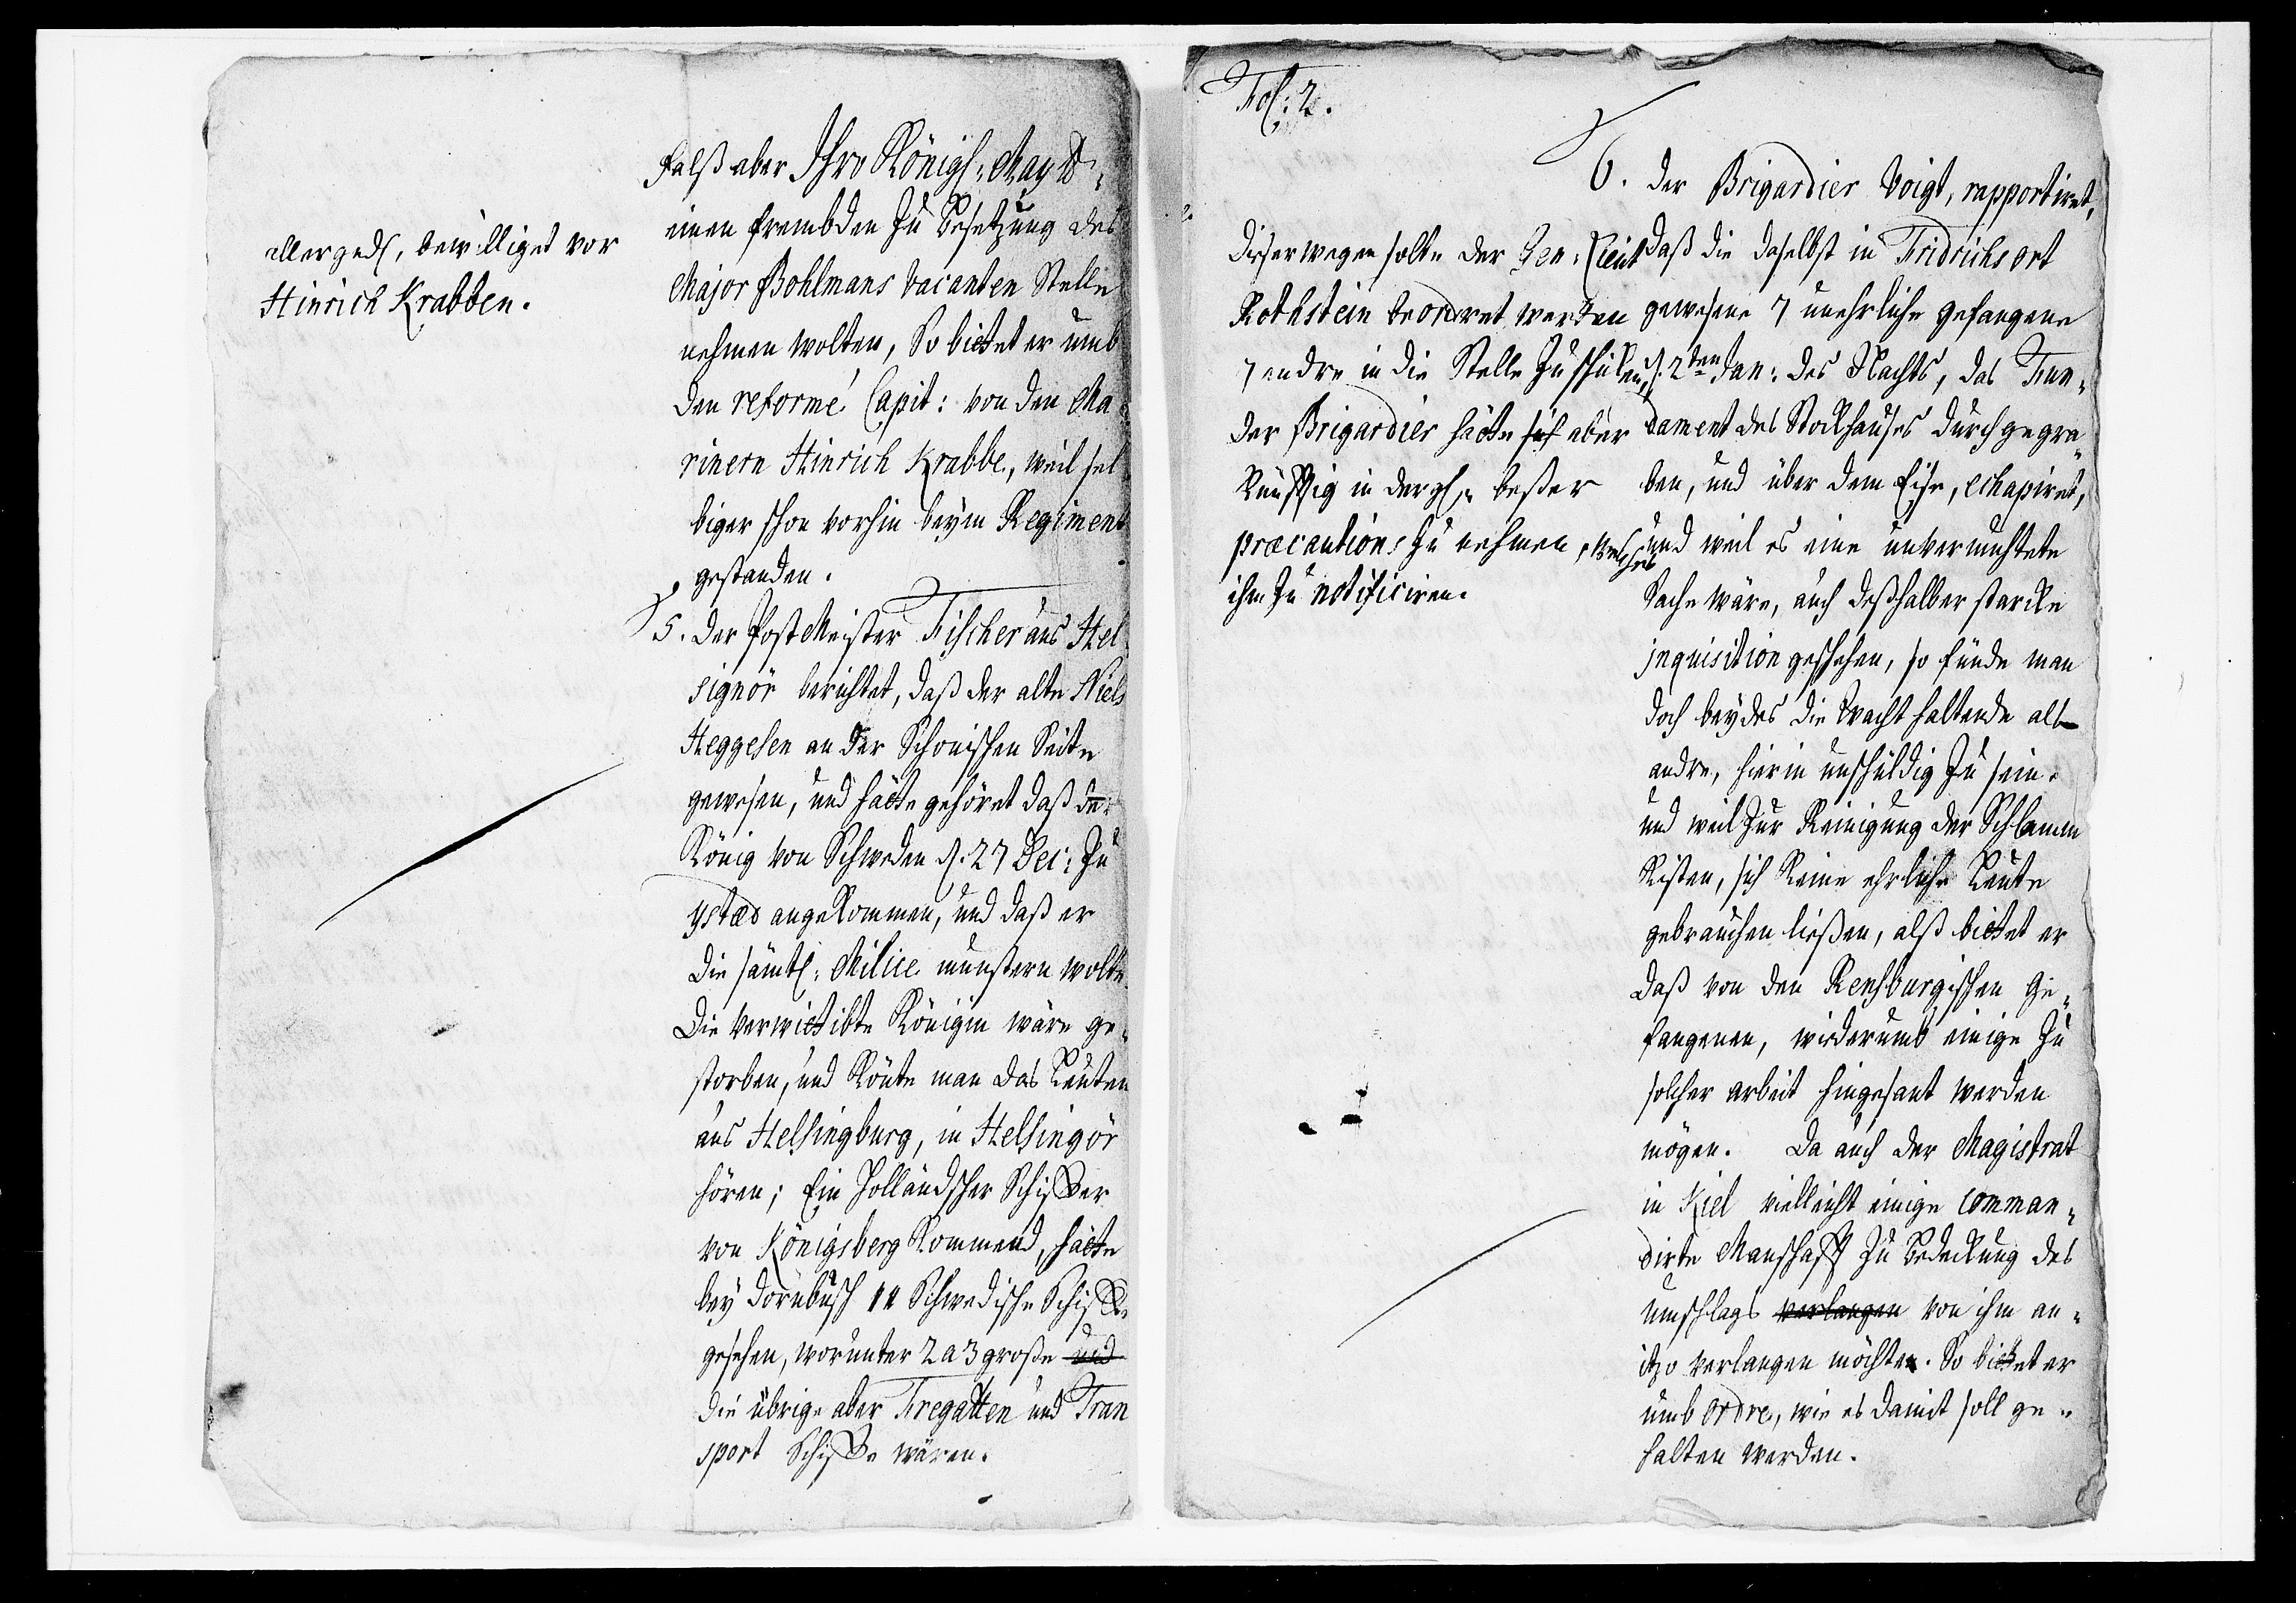 allergndl, bewilliget vor
Hinrich Krabben.
Falß aber Ihro Königl: Mayt:
einen frembden zu besetzung des
Major Bohlmans vacanten Stelle
nehmen wolten, So bittet er umb
den reformé Capit: von den Ma-
rinern Hinrich Krabbe, weil sel-
biger schon vorhin beym Regiment
gestanden.
5. Der Post Meister Fischer aus Hel-
signör berichtet, daß der alte Niels
Heggesen an der Schonischen Seite
gewesen, und hätte gehöret daß der
König von Schweden d. 27 Dec: zu
ystæd angekommen, und daß er
die sämtl: Milice munstern wolte.
Die verwittibte Königin wäre ge-
storben, und könte man das Leuten
aus Helsingburg, in Helsingör
hören; Ein Holländscher Schiffer
von Königsberg kommend, hätte
bey Dornbusch 14 Schwedische Schiffe
gesehen, worunter 2 a 3 große und
die übrige aber Fregatten und Tran
sport Schiffe wären.
Fol: 2.
Dieserwegen solte der Gen: Lieut
Rothstein beordret werden
7 andre in die Stelle zu schicken,
der Brigardier hätte sich aber
künfftig in dergl: beßer
præcautions zu nehmen, welches
ihm zu notificiren.
6. Der Brigardier Voigt, rapportiret,
daß die daselbst in Fridrichsort
gewesene 7 unehrliche gefangene
d. 2ten Jan: des Nachts, das Fun-
dament des Stockhauses durchgegra-
ben, und über dem Eise, echapiret,
und weil es eine unvermuhtete
Sache wäre, auch deßhalber starcke
jnquisition geschehen, so fünde man
doch beydes die Wacht haltende alß
andre, hierin unschuldig zu sein.
und weil zur Reinigung der Schlamm
Kisten, sich keine ehrliche Leute
gebrauchen ließen, alß bittet er
daß von den Rensburgischen Ge-
fangenen, wiederumb einige zu
solcher arbeit hingesant werden
mögen. Da auch der Magistrat
in Kiel vielleicht einige comman-
dirte Manschafft zu bedeckung des
umschlags verlangen von ihm an-
itzo verlangen möchte. So bittet er
umb ordre, wie es damit soll ge-
halten werden.